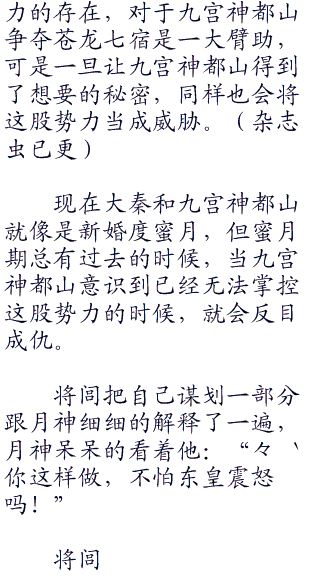 力的存在，对于九宫神都山
争夺苍龙七宿是一大臂助，
可是一旦让九宫神都山得到
了想要的秘密，同样也会将
这股势力当成威胁。（杂志
虫已更）
现在大秦和九宫神都山
就像是新婚度蜜月，但蜜月
期总有过去的时候，当九宫
神都山意识到已经无法掌控
这股势力的时候，就会反目
成仇。
将闾把自己谋划一部分
跟月神细细的解释了一遍，
月神呆呆的看着他：“々〝
你这样做，不怕东皇震怒
吗！”
将闾